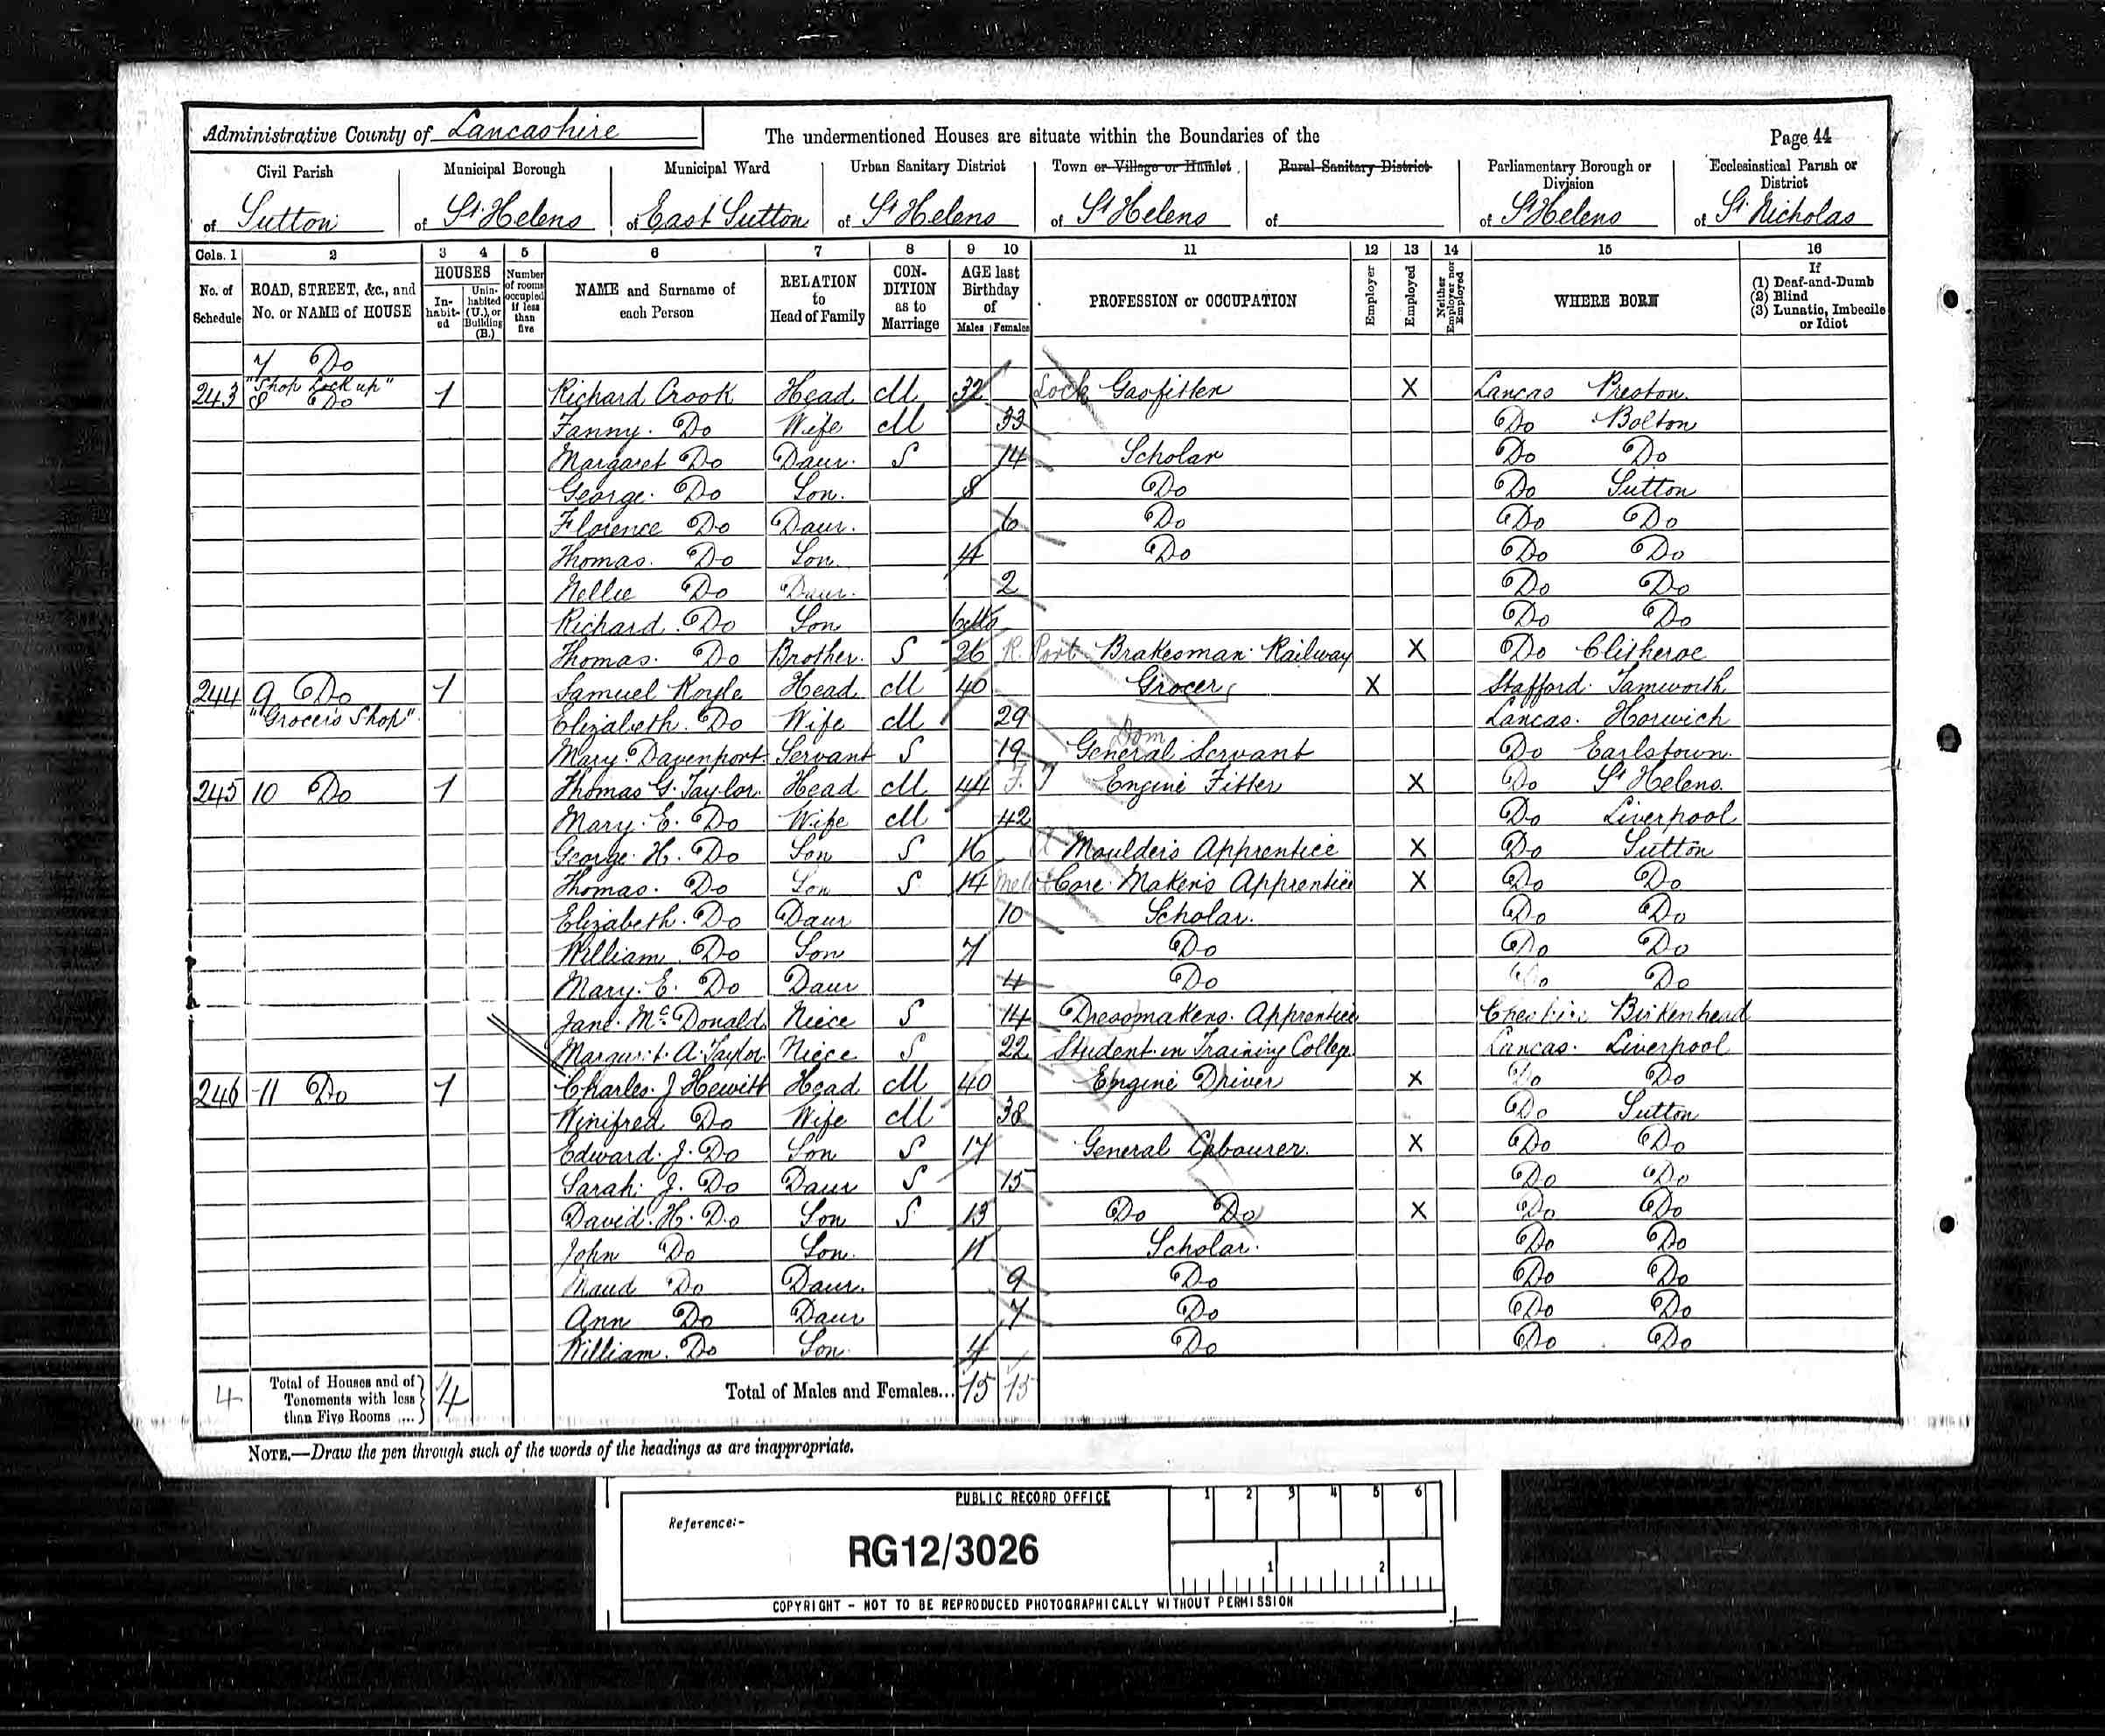 Administrative County of Lancashire The undermentioned Houses are situate within the Boundaries of the Page 44
Civil Parish Municipal Borough Municipal Ward Urban Sanitary District Town or Village or Hamlet Rural Sanitary District Parliamentary Borough or Division Ecclesiastical Parish or District
of Sutton of St Helens of East Sutton of St Helens of St Helens of of St Helens of St Nicholas
Cols. 1 2 3 4 5 6 7 8 9 10 11 12 13 14 15 16
No. of Schedule ROAD, STREET, &c., and No. or NAME of HOUSE HOUSES Inhabited Uninhabited (U.), or Building (B.) Number of rooms occupied if less than five NAME and Surname of each Person RELATION to Head of Family CONDITION as to Marriage AGE last Birthday of Males Females PROFESSION or OCCUPATION Employer Employed Neither Employer nor Employed WHERE BORN If (1) Deaf-and-Dumb (2) Blind (3) Lunatic, Imbecile or Idiot
7 Do
"Shop Lock up"
243 8 Do 1 Richard Crook Head M 32 Lock Gasfitter X Lancas Preston
Fanny Do Wife M 33 Do Bolton
Margaret Do Daur. S 14 Scholar Do Do
George Do Son. 8 Do Do Sutton
Florence Do Daur. 6 Do Do Do
Thomas Do Son 4 Do Do Do
Nellie Do Daur. 2 Do Do
Richard Do Son 6 Mo Do Do
Thomas Do Brother S 26 R. Port Brakesman Railway X Do Clitheroe
244 9 Do 1 Samuel Royle Head M 40 Grocer X Stafford Tamworth
"Grocers Shop" Elizabeth Do Wife M 29 Lancas. Horwich
Mary Davenport Servant S 19 Dom General Servant Do Earlstown
245 10 Do 1 Thomas G. Taylor Head M 44 F. T Engine Fitter X Do St Helens
Mary E. Do Wife M 42 Do Liverpool
George H. Do Son S 16 Moulders Apprentice X Do Sutton
Thomas Do Son S 14 Core Makers Apprentice X Do Do
Elizabeth Do Daur 10 Scholar. Do Do
William Do Son 7 Do Do Do
Mary E. Do Daur 4 Do Do Do
Jane McDonald Niece S 14 Dressmakers Apprentice Cheshire Birkenhead
Margaret A. Taylor Niece S 22 Student in Training College Lancas. Liverpool
246 11 Do 1 Charles J Hewitt Head M 40 Engine Driver X Do Do
Winifred Do Wife M 38 Do Sutton
Edward J. Do Son S 17 General Labourer X Do Do
Sarah J. Do Daur S 15 Do Do
David H. Do Son S 13 Do Do X Do Do
John Do Son. 11 Scholar. Do Do
Maud Do Daur. 9 Do Do Do
Ann Do Daur 7 Do Do Do
William Do Son 4 Do Do Do
4 Total of Houses and of Tenements with less than Five Rooms .... 4 Total of Males and Females... 15 15
NOTE.—Draw the pen through such of the words of the headings as are inappropriate.
PUBLIC RECORD OFFICE 1 2 3 4 5 6
Reference:-
RG12/3026
1 2
COPYRIGHT - NOT TO BE REPRODUCED PHOTOGRAPHICALLY WITHOUT PERMISSION